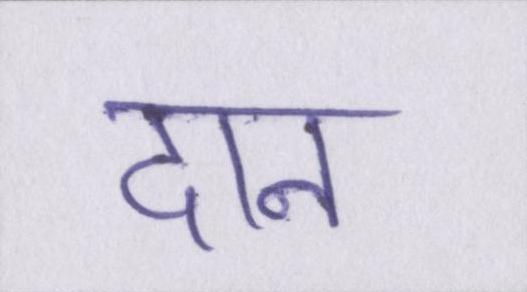 दान